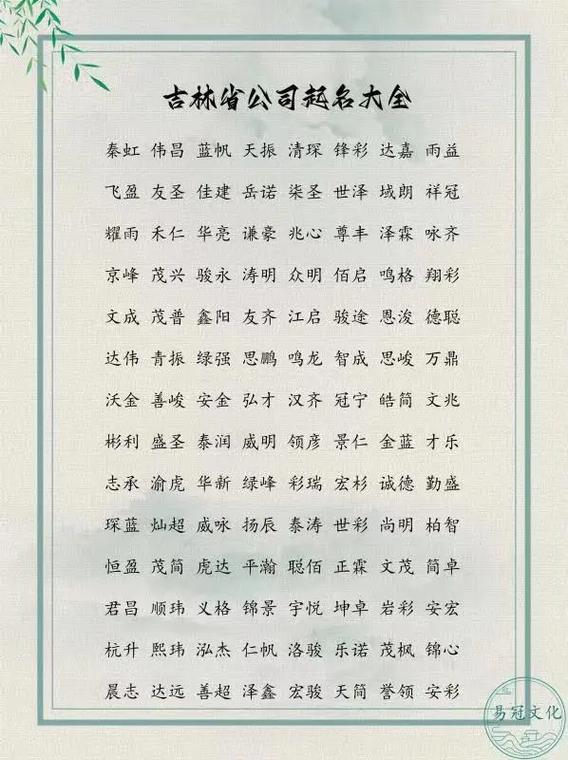 吉林省公司起名大全
秦虹 伟昌 蓝帆 天振 清琛 锋彩 达嘉 雨益
飞盈 友圣 佳建 岳诺 柒圣 世泽 域朗 祥冠
耀雨 禾仁 华亮 谦豪 兆心 尊丰 泽霖 咏齐
京峰 茂兴 骏永 涛明 众明 佰启 鸣格 翔彩
文成 茂普 鑫阳 友齐 江启 骏途 恩浚 德聪
达伟 青振 绿强 思鹏 鸣龙 智成 思峻 万鼎
沃金 善峻 安金 弘才 汉齐 冠宁 皓简 文兆
彬利 盛圣 泰润 威明 领彦 景仁 金蓝 才乐
志承 渝虎 华新 绿峰 彩瑞 宏杉 诚德 勤盛
琛蓝 灿超 威咏 扬辰 泰涛 世彩 尚明 柏智
恒盈 茂简 虎达 平瀚 聪佰 正霖 文茂 简卓
君昌 顺玮 义格 锦景 宇悦 坤卓 岩彩 安宏
杭升 熙玮 泓杰 仁帆 洛骏 乐诺 茂枫 锦心
晨志 达远 善超 泽鑫 宏骏 天简 誉领 安彩
易冠文化